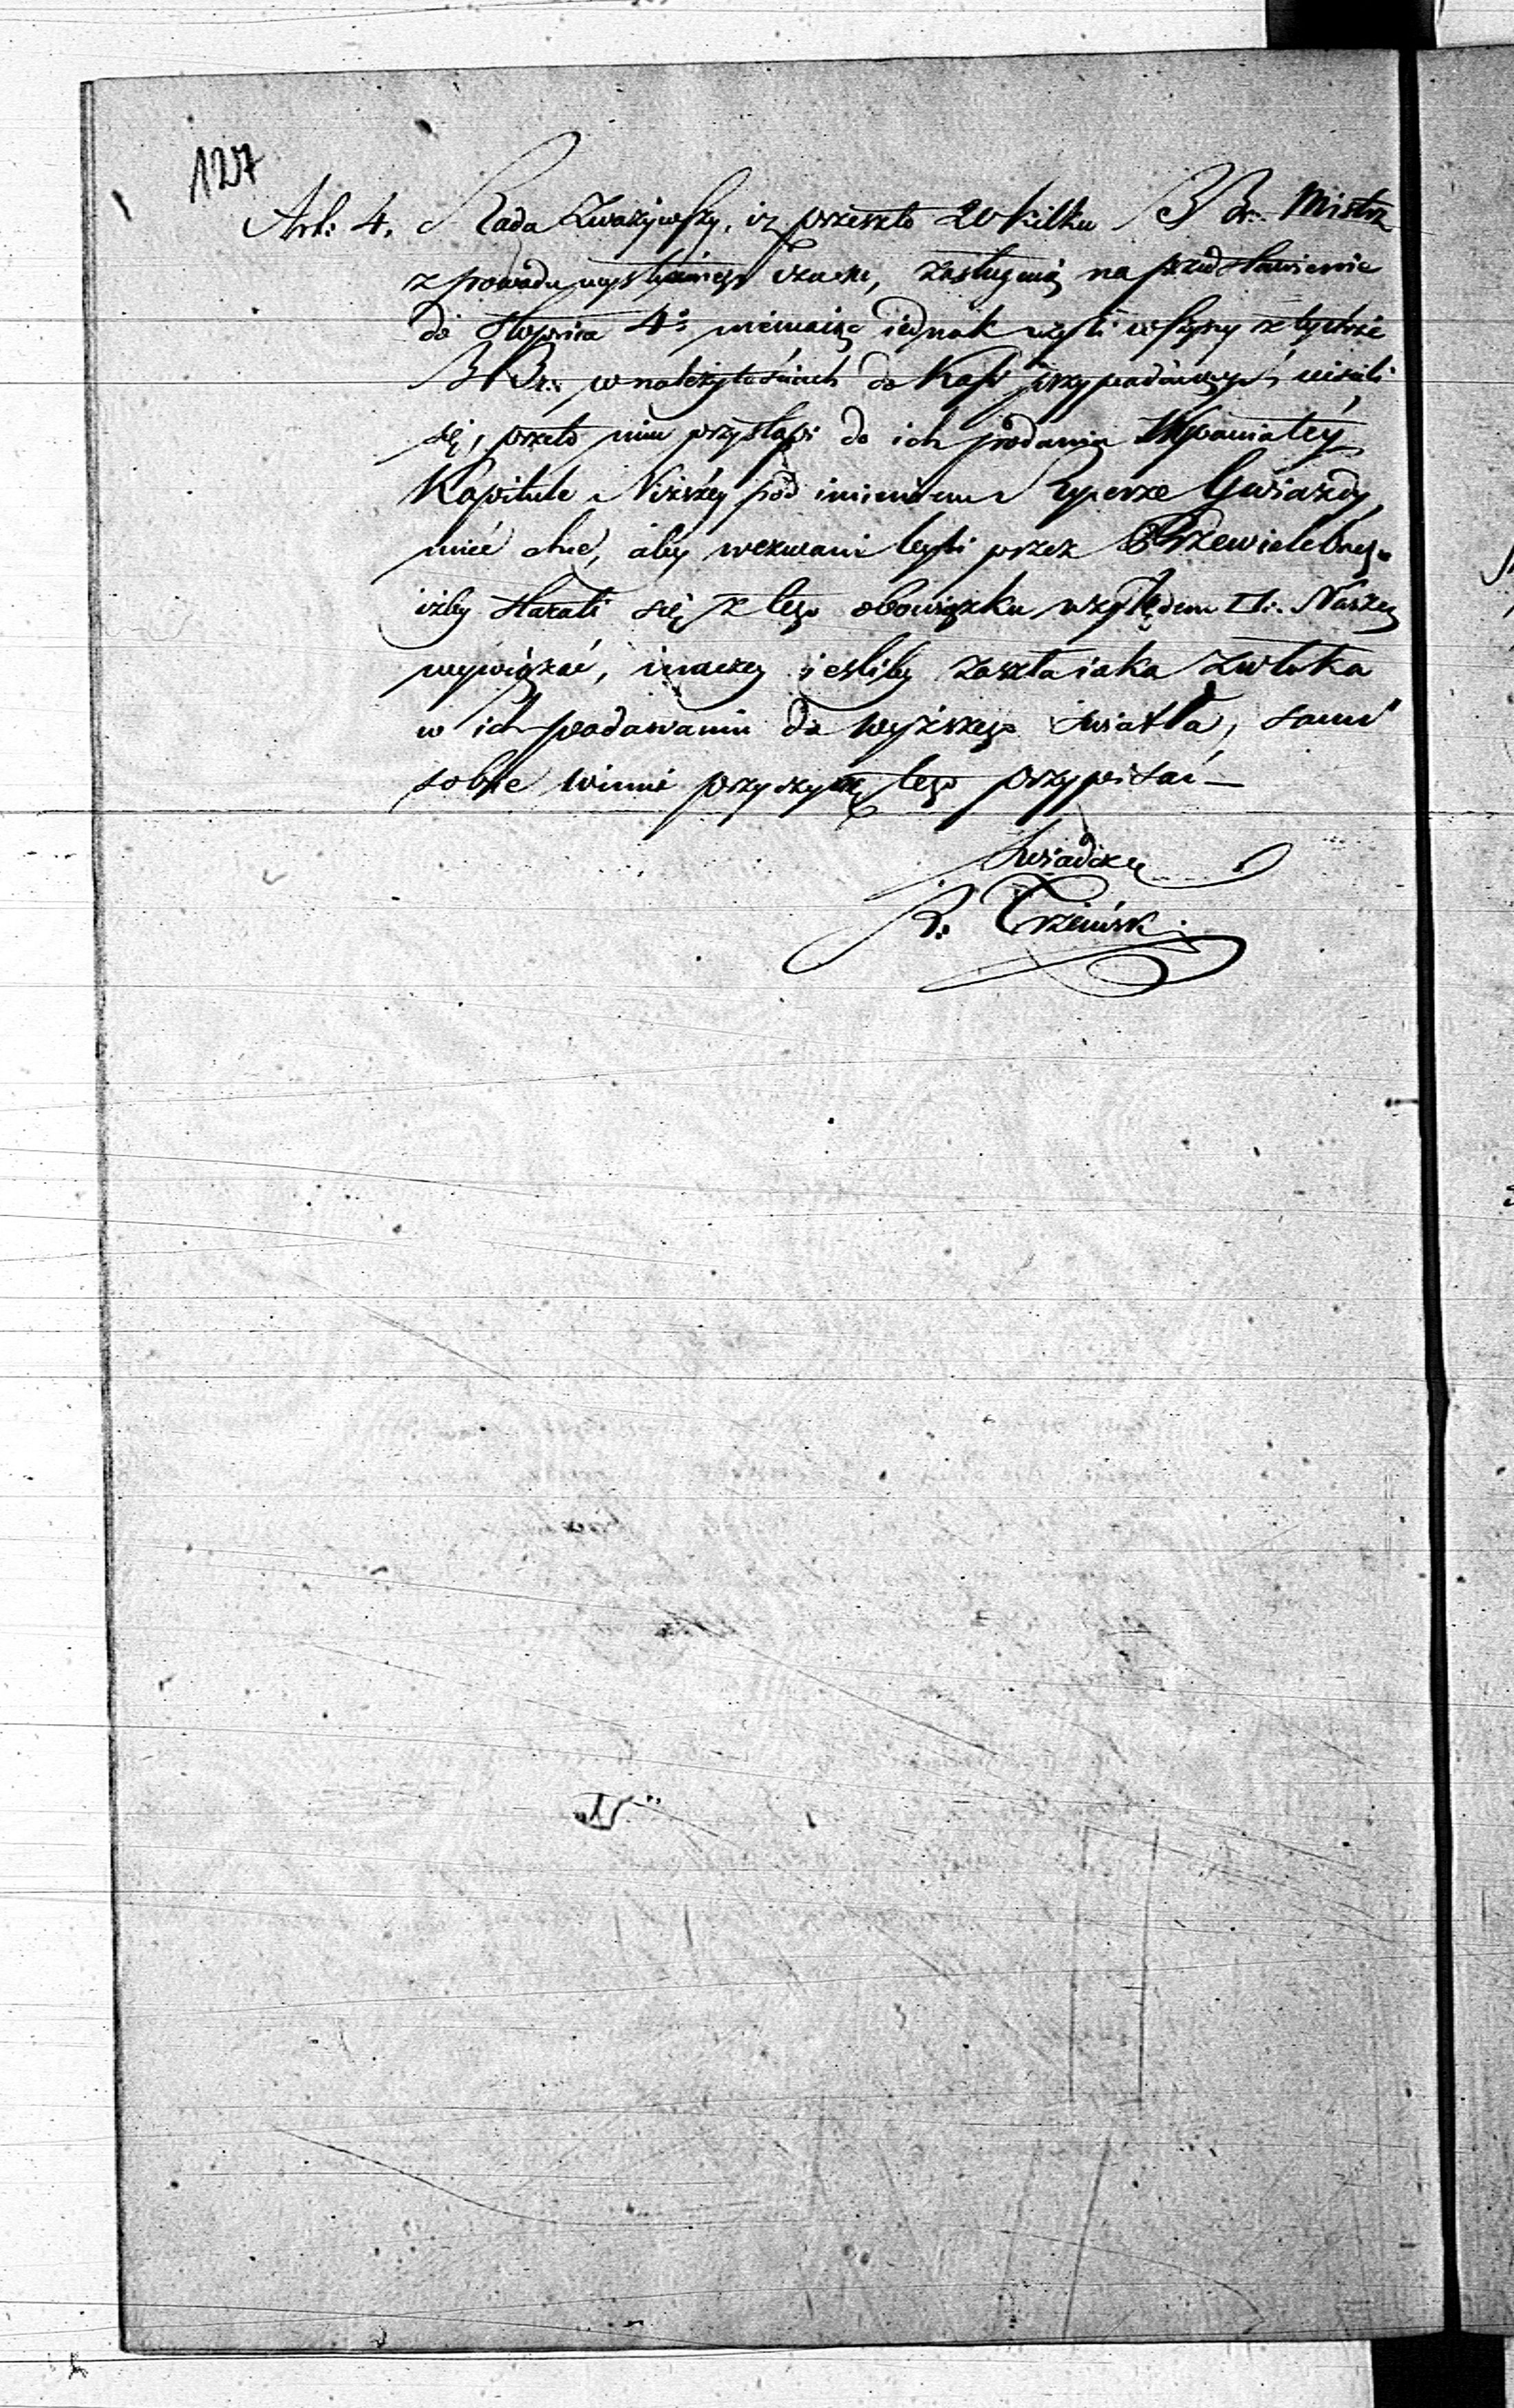 127
Art: 4. Rada Zważywszy, iż przeszło 20 kilku B Br:. Mistrz
z powodu wysłużonego czasu, zasługuią na przedstawienie
do stopnia 4º niemaiąc iednak wszyscy z tychże
BBr:. w należytościach do Kassy przypadaiących uiścili
się, przeto nim przystąpi do ich podania Wspaniałéy
Kapitule Niższéy pod imieniem Rycerze Gwiazdy
mieć chce, aby wezwani byli przez Przewielebnego
iżby starali się z tego obowiązku względem □:. Naszey
wywiązać, inaczey ieśliby zaszła iaka zwłoka
w ich podawaniu do wyższego światła, sami
sobie winni przyczynę tego przypisać —
Świadczę